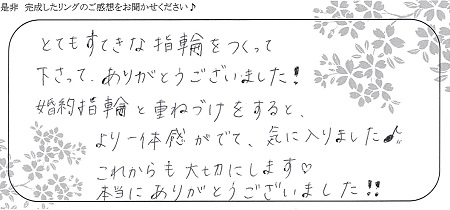 是非 完成したリングのご感想をお聞かせください♪
とてもすてきな指輪をつくって
下さって、ありがとうございました!
婚約指輪と重ねづけをすると、
より一体感がでて、気に入りました♪
これからも大切にします♡
本当にありがとうございました!!